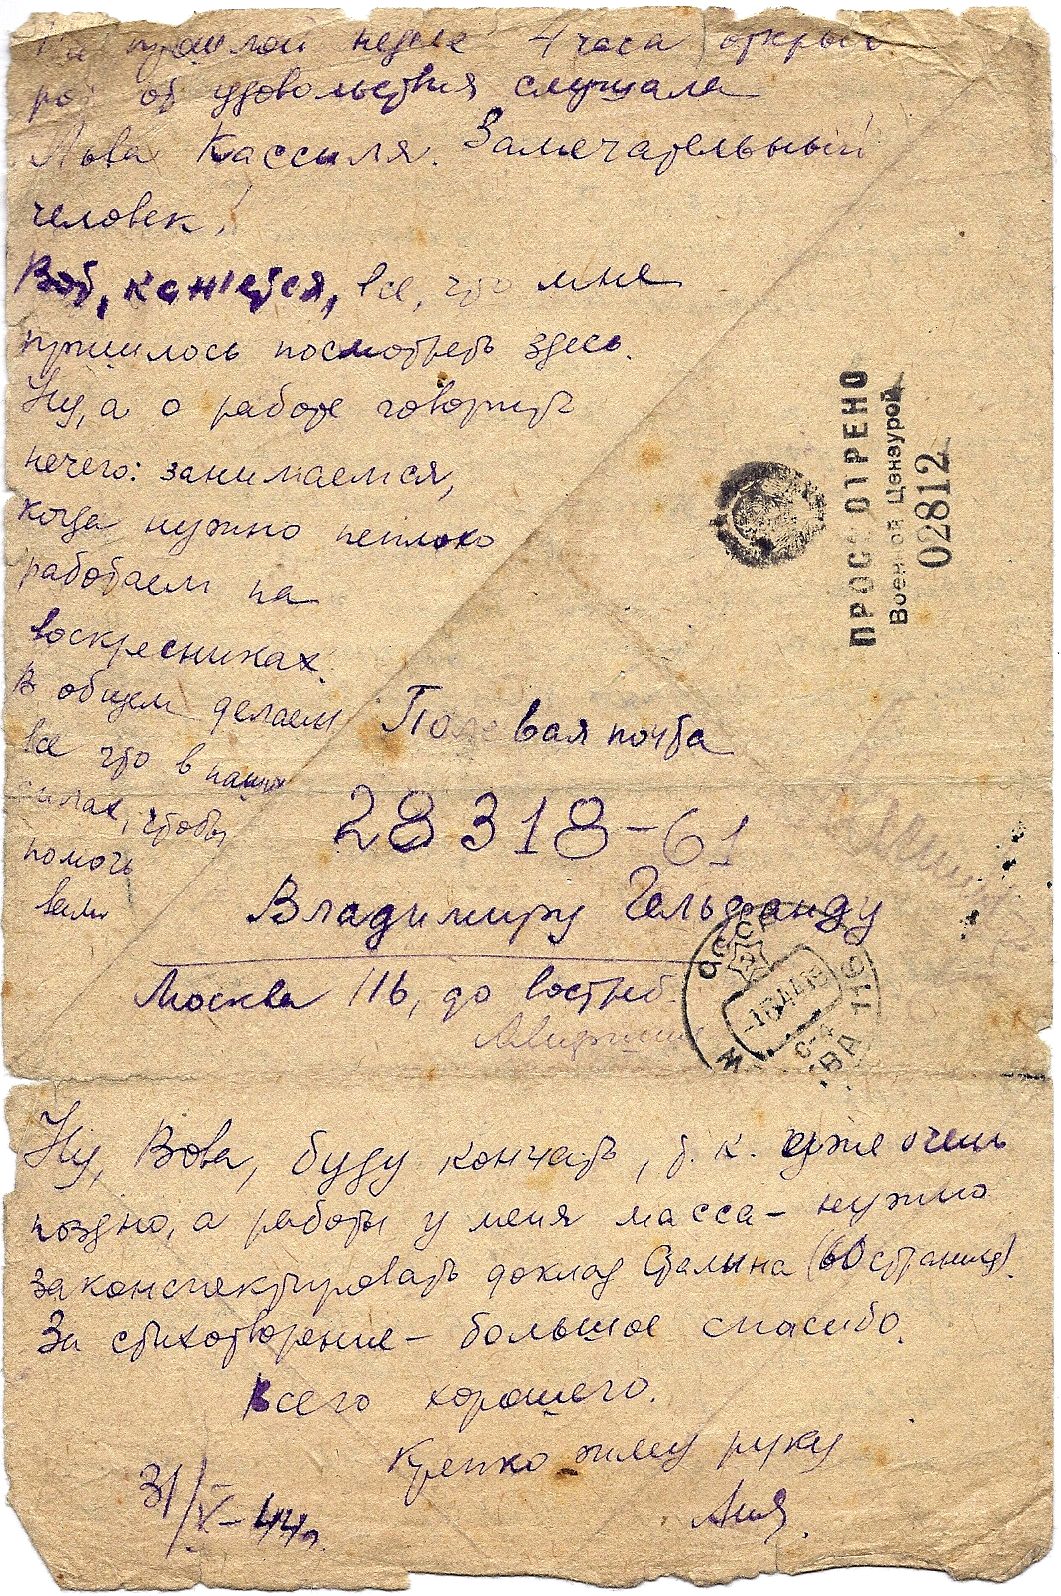 На прошлой неделе 4 часа открыв
рот от удовольствия слушала
Льва Кассиля. Замечательный
человек!
Вот, кажется, все, что мне
пришлось посмотреть здесь.
Ну, а о работе говорить
нечего: занимаемся,
когда нужно неплохо
работаем на
воскресниках.
В общем делаем
все что в наших
силах, чтобы
помочь
вам
ПРОСМОТРЕНО
Военной Цензурой
02812
Полевая почта
28318-61
Владимиру Гельфанду
Москва 116, до востреб.
СССР
Ну, Вова, буду кончать, т. к. уже очень
поздно, а работы у меня масса – нужно
законспектировать доклад Сталина (60 страниц).
За стихотворение – большое спасибо.
Всего хорошего.
Крепко жму руку
Аня.
31/V – 44 г.